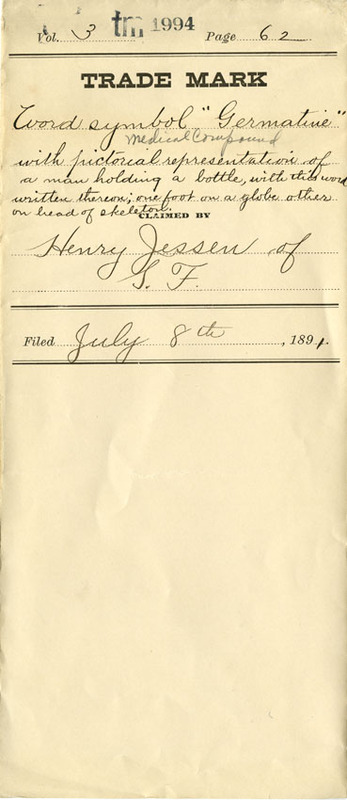 tm 1994
Vol. 3 Page 62
TRADE MARK
Word symbol "Germatine"
Medical Compound
with pictorial representation of
a man holding a bottle, with this word
written thereon, one foot on a globe other
on head of skeleton.
CLAIMED BY
Henry Jessen of
S. F.
Filed July 8th, 1891.